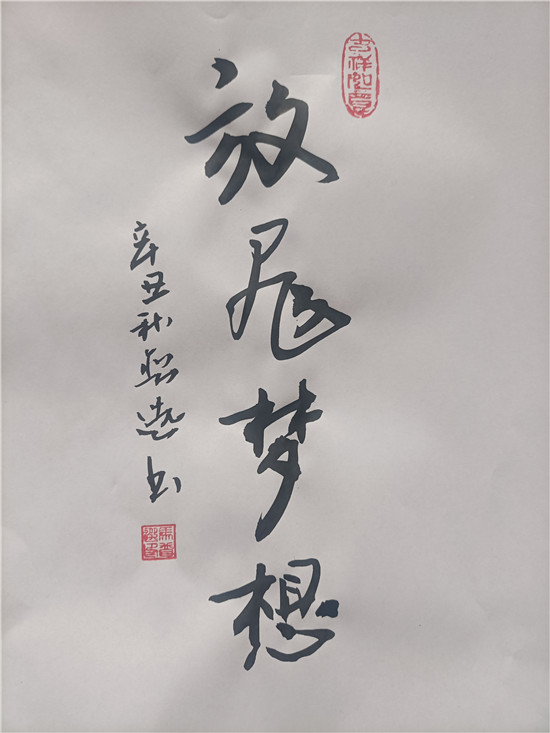 吉祥如意
放飞梦想
辛丑秋 書